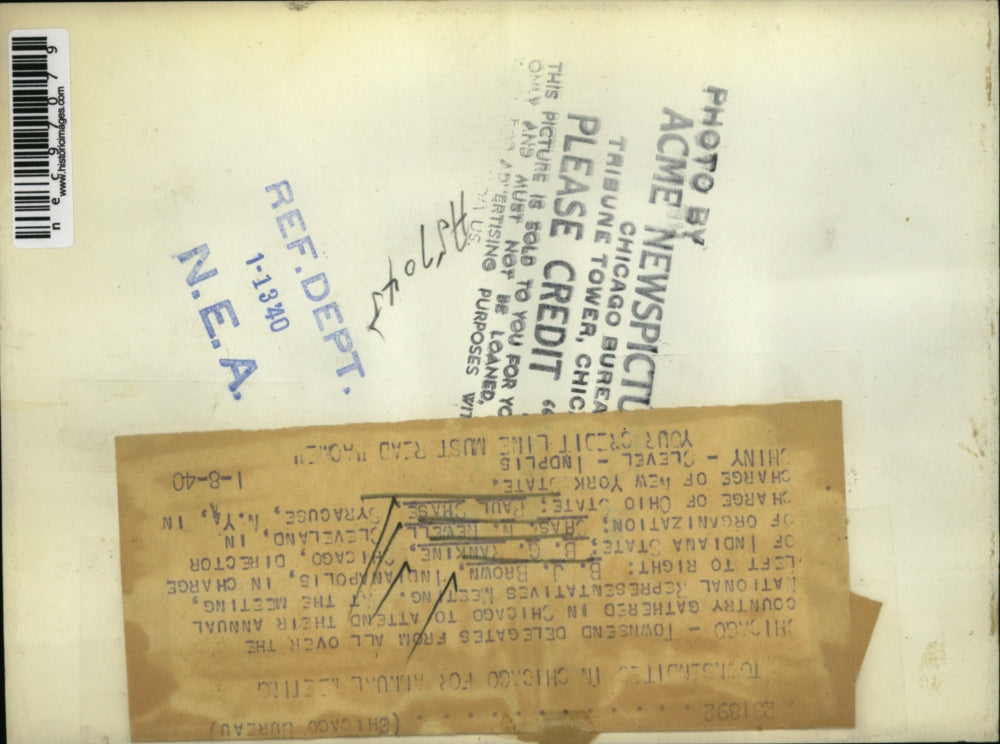 n e c 9 7 0 7 9
www.historicimages.com
PHOTO BY
ACME NEWSPICTU
CHICAGO BUREA
TRIBUNE TOWER, CHIC
PLEASE CREDIT "
THIS PICTURE IS SOLD TO YOU FOR YO
ONLY AND MUST NOT BE LOANED,
FOR ADVERTISING PURPOSES WIT
US
REF. DEPT.
1-13'40
N.E.A.
(CHICAGO BUREAU)
TOWNSENDITES IN CHICAGO FOR ANNUAL MEETING
CHICAGO - TOWNSEND DELEGATES FROM ALL OVER THE
COUNTRY GATHERED IN CHICAGO TO ATTEND THEIR ANNUAL
NATIONAL REPRESENTATIVES MEETING. AT THE MEETING,
LEFT TO RIGHT: B. J. BROWN, INDIANAPOLIS, IN CHARGE
OF INDIANA STATE; B. G. RANKINE, CHICAGO, DIRECTOR
OF ORGANIZATION; CHAS. N. NEWELL, CLEVELAND, IN
CHARGE OF OHIO STATE; PAUL CHASE, SYRACUSE, N.Y., IN
CHARGE OF NEW YORK STATE.
CHINY - CLEVEL - INDPLIS 1-8-40
YOUR CREDIT LINE MUST READ "ACME"